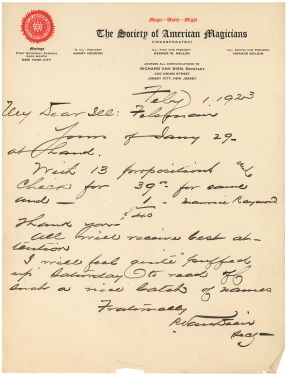 Magic-Unity-Might
The Society of American Magicians
(INCORPORATED)
Meetings
First Saturday Evening
Each Month
NEW YORK CITY
M. ILL. PRESIDENT
HARRY HOUDINI
ILL. FIRST VICE PRESIDENT
GEORGE W. HELLER
ILL. SECOND VICE PRESIDENT
HORACE GOLDIN
ADDRESS ALL COMMUNICATIONS TO
RICHARD VAN DIEN, SECRETARY
UNION STREET
JERSEY CITY, NEW JERSEY
Feby 1, 1923
My Dear Ill: Felsman
Yours of Jany 29-
at hand.
With 13 propositions and
check for 39.00 for same
and - 1 - Maurice Raymond
Thank you-
All will receive best at-
tention
I will feel quite "puffed
up" Saturday to read of
such a nice batch of names
Fraternally
R. Van Dien
Secy-